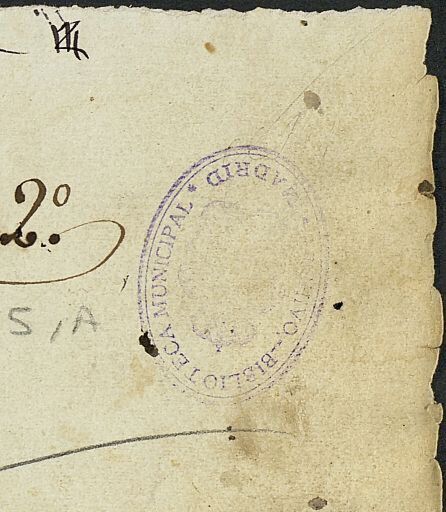 2.º
5, A
BIBLIOTECA MUNICIPAL * MADRID *